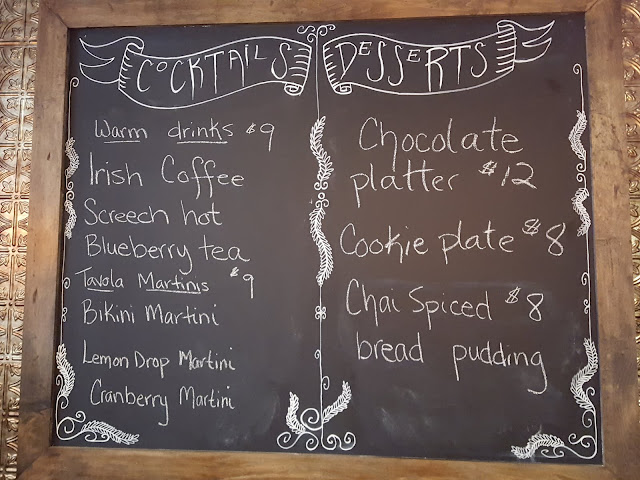 COCKTAILS
Warm drinks $9
Irish Coffee
Screech hot
Blueberry tea
Tavola Martinis $9
Bikini Martini
Lemon Drop Martini
Cranberry Martini
DESSERTS
Chocolate
platter $12
Cookie plate $8
Chai Spiced $8
bread pudding